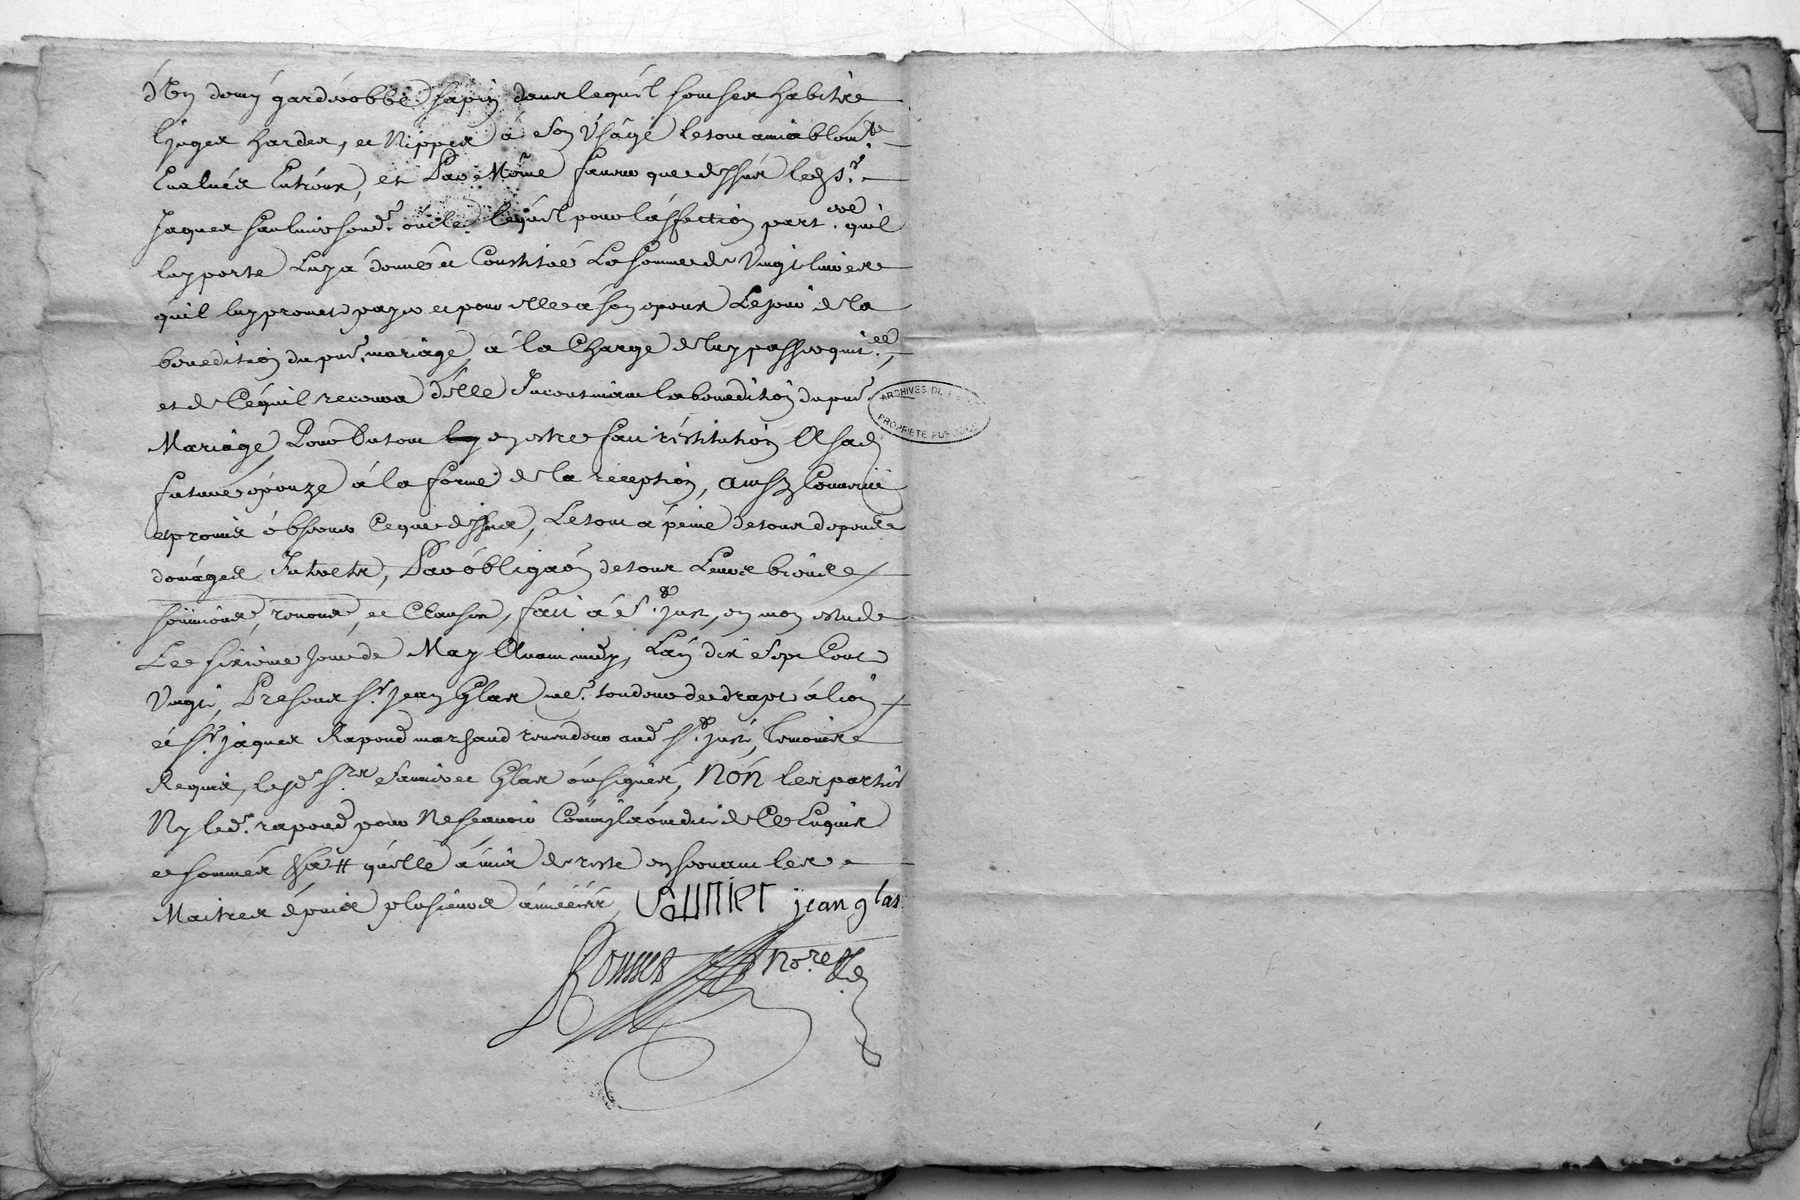 d'un demy garderobbe sapin dans lequel sont ses habitz
linges hardes, et Nippes à son Usage le tout amiablem.t
Evalués Entreux, et Par Mesme faveur que dessus led. s.r
Jaques saulnier son d. oncle lequel pour l'affection part.re qu'il
luy porte Luy a donné et Constitué La somme de Vingt livres
qu'il luy promet payer et pour elle a son epoux Le jour de la
benediction du pnt. mariage, à la Charge de luy passer quit.ce
et de Ce qu'il recevra d'elle Incontinant la benediction du pnt.
Mariage, Pour Du tout en estre fait restitution A sad.
future epouze à la forme de la reception, Ainsy Convenu
et promis observer Ce que dessus, Le tout à peine de tous depens
domages Intretz, Par obligaon de tous Leurs biens
soumions, renons, et Clauses, fait à S.t Just, en mon estude
Le sixieme Jour de May Avant midy, L'an dix sept Cent
Vingt, Presens s.r Jean Glas me. tondeur de draps à lion
et s.r jaques Rapoud marchand revendeur aud. s.t just, temoins
Requis, lesd. s.rs saunier et Glas ont signés, Non les parties
Ny led. rapoud pour Ne scavoir Comme ont dit de Ce Enquis
et sommés qu'elle a mis de reste en servant les
Maitres depuis plusieurs années, Saunier jean glas
Rousset No.re R.
ARCHIVES DU
PROPRIETE PUBLIQUE